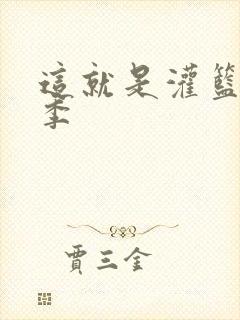 這就是灌籃
季
賈三金